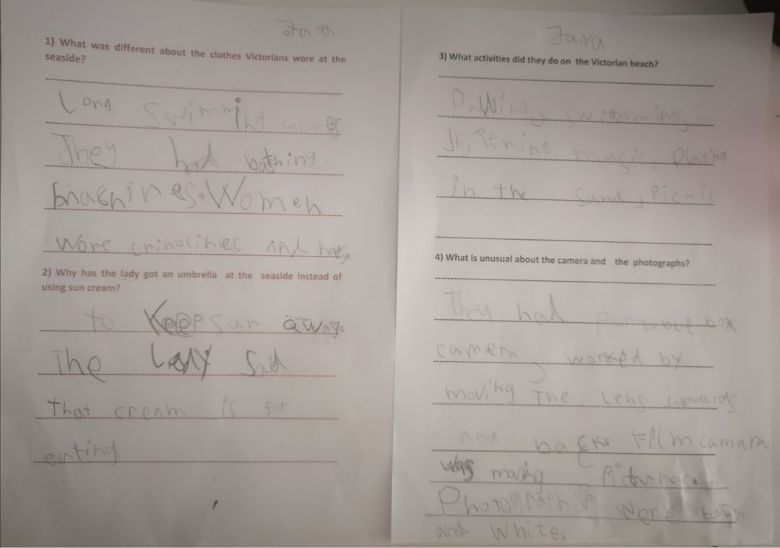 1) What was different about the clothes Victorians wore at the
seaside?
Long swimming
They had bathing
machines. Women
wore crinolines and hats.
2) Why has the lady got an umbrella at the seaside instead of
using sun cream?
to keep sun away.
The Lady said
That cream is for
eating.
3) What activities did they do on the Victorian beach?
swimming,
music, playing
in the sand, picnic
4) What is unusual about the camera and the photographs?
They had box
camera, worked by
moving The lens
and Film camara
was making
were
and white.